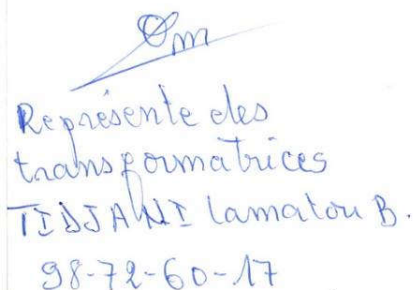 Représente des
transformatrices
TIDJANI lamatou B.
98-72-60-17